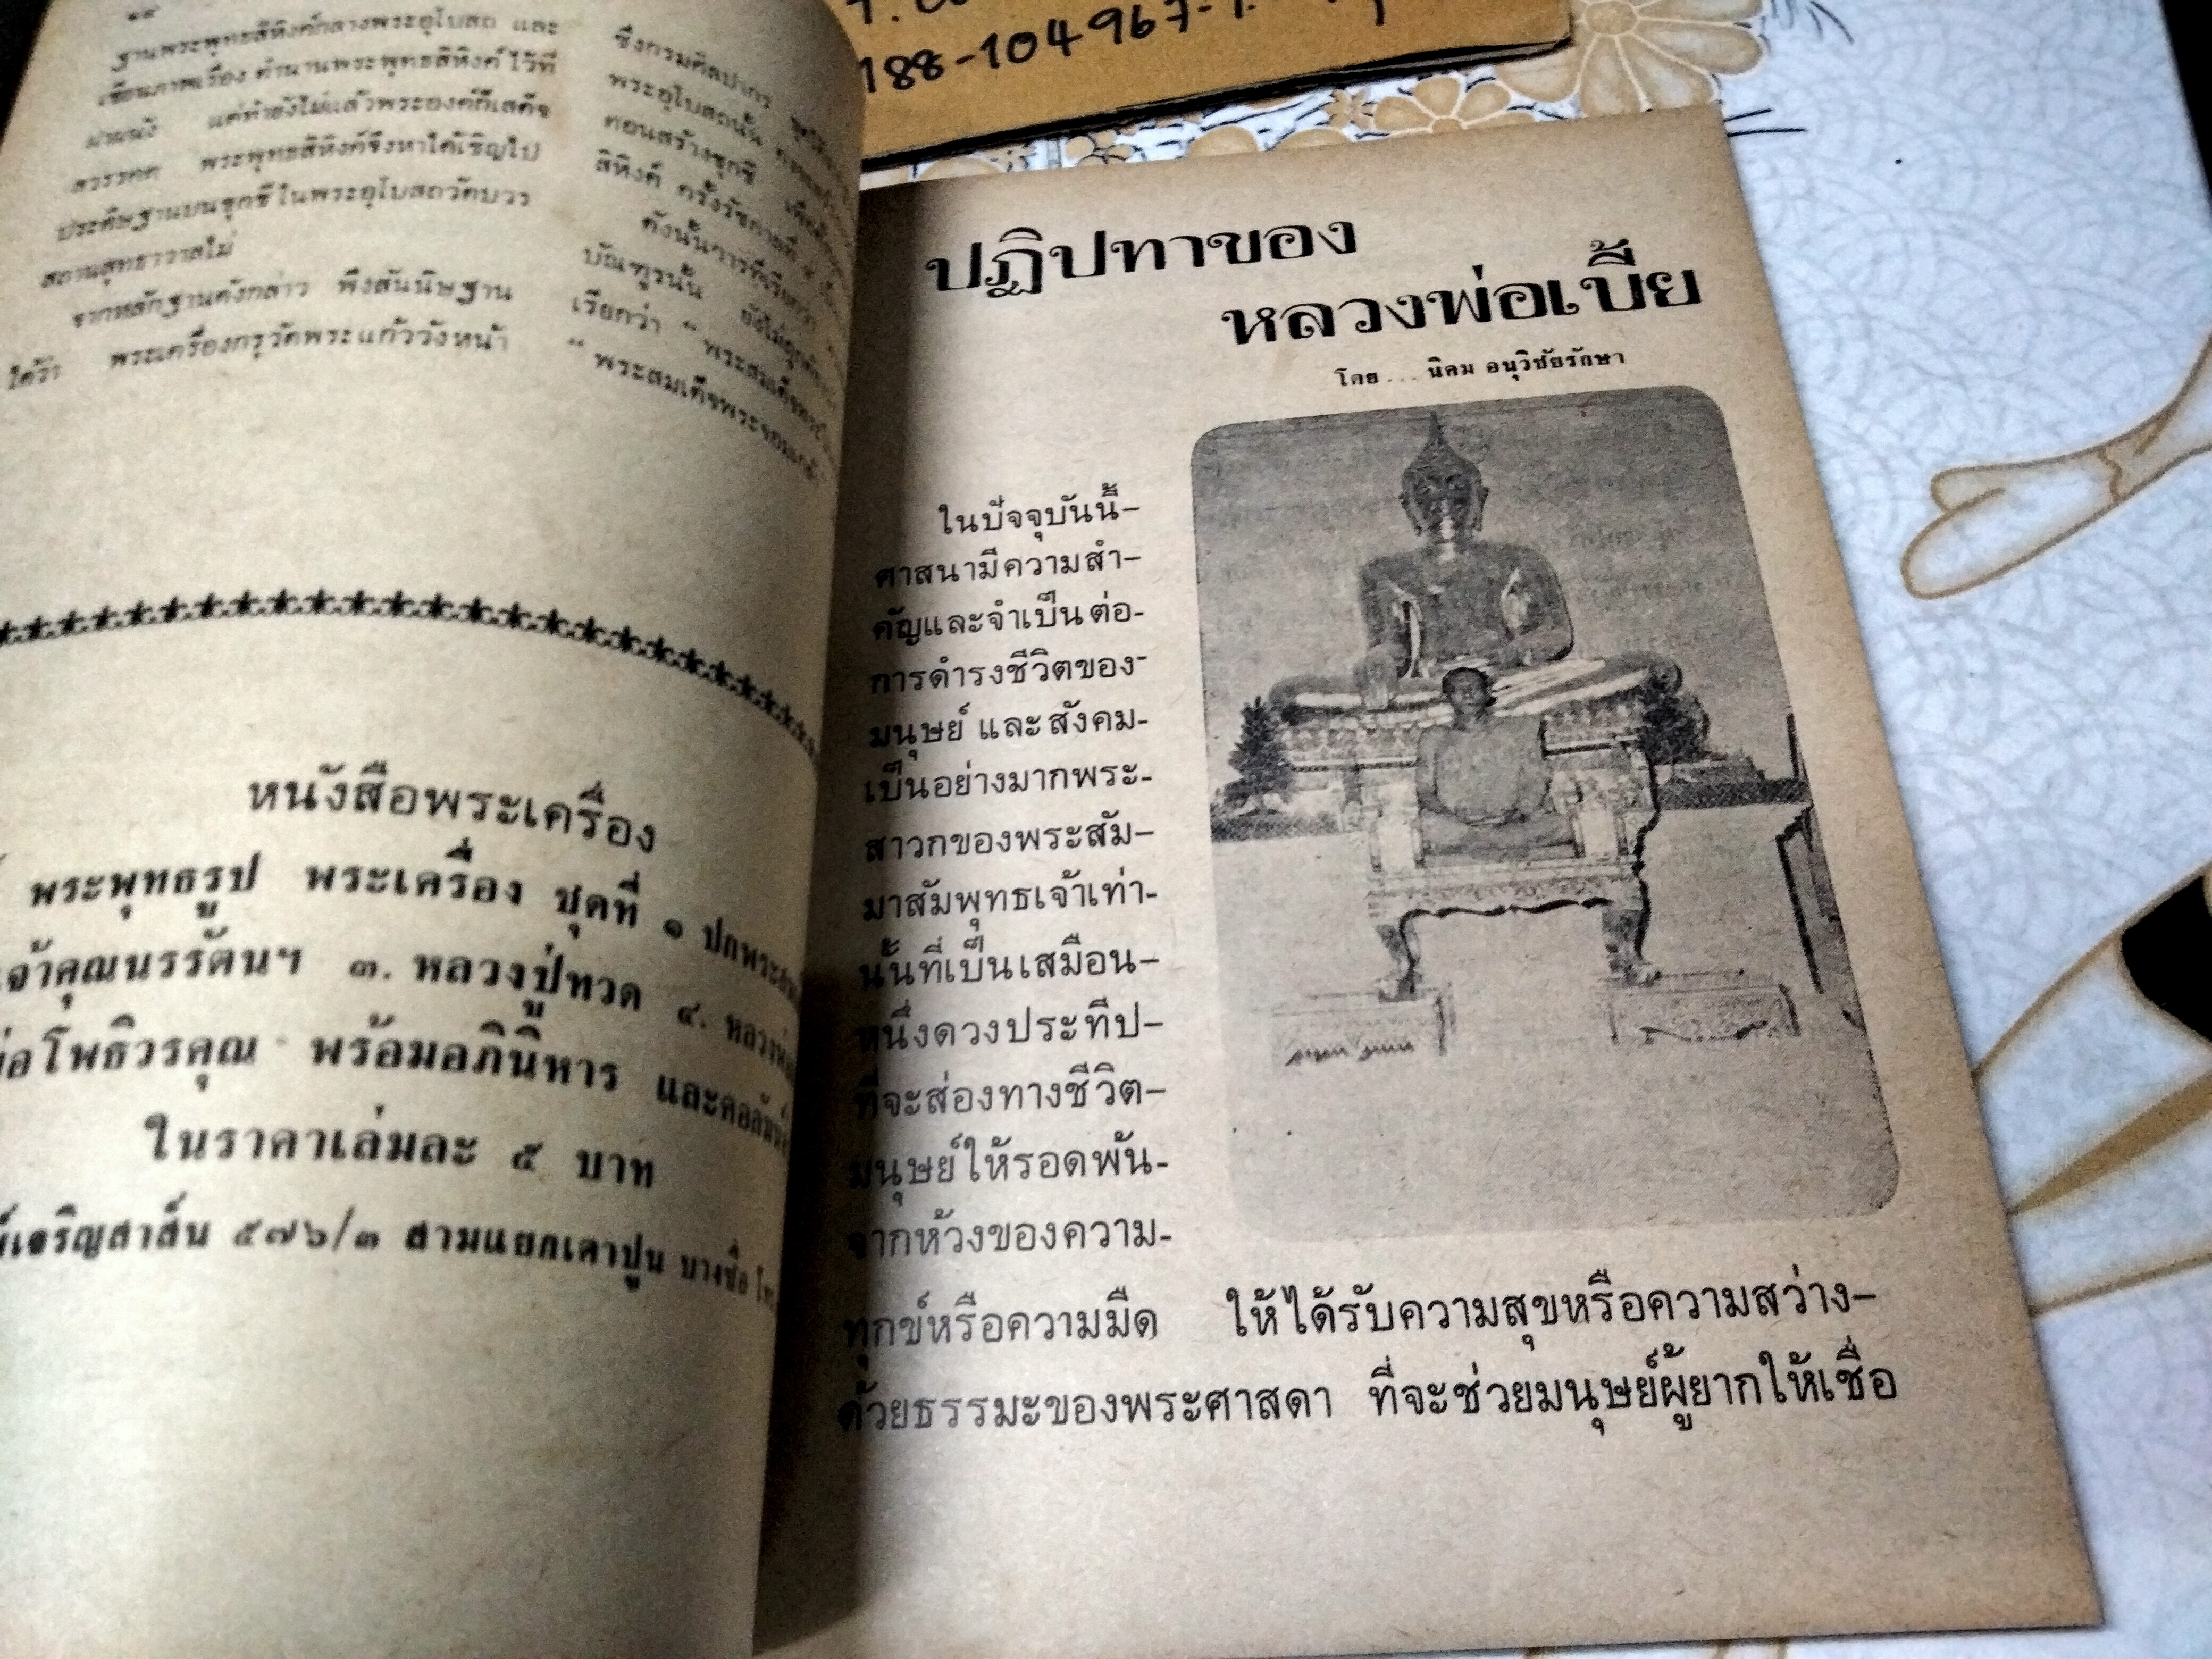 ฐานพระพุทธสิหิงค์กลางพระอุโบสถ และ
เขียนภาพเรื่อง ตำนานพระพุทธสิหิงค์ ไว้ที่
ฝาผนัง แต่ทำยังไม่แล้วพระองค์ก็เสด็จ
สวรรคต พระพุทธสิหิงค์จึงหาได้เชิญไป
ประดิษฐานบนชุกชีในพระอุโบสถวัดบวร
สถานสุทธาวาสไม่
จากหลักฐานดังกล่าว พึงสันนิษฐาน
ได้ว่า พระเครื่องกรุวัดพระแก้ววังหน้า
ซึ่งกรมศิลปากร
พระอุโบสถนั้น
ตอนสร้างชุกชี
สิหิงค์ ครั้งรัชกาลที่
ดังนั้นการที่เรียกว่า
บัณฑูรนั้น ยังไม่ถูก
เรียกว่า “ พระสมเด็จ
“ พระสมเด็จพระจอมเกล้า
หนังสือพระเครื่อง
พระพุทธรูป พระเครื่อง ชุดที่ ๑
เจ้าคุณนรรัตนฯ ๓. หลวงปู่ทวด ๔.
โพธิวรคุณ พร้อมอภินิหาร และคอลัมน์
ในราคาเล่มละ ๕ บาท
เจริญสาส์น ๕๗๖/๓ สามแยกเตาปูน บางซื่อ
188-104967-
ปฏิปทาของ
หลวงพ่อเบี้ย
โดย... นิคม อนุวิชัยรักษา
ในปัจจุบันนี้–
ศาสนามีความสำ–
คัญและจำเป็นต่อ-
การดำรงชีวิตของ-
มนุษย์ และสังคม-
เป็นอย่างมากพระ-
สาวกของพระสัม–
มาสัมพุทธเจ้าเท่า-
นั้นที่เป็นเสมือน–
หนึ่งดวงประทีป–
ที่จะส่องทางชีวิต–
มนุษย์ให้รอดพ้น-
จากห้วงของความ-
ทุกข์หรือความมืด ให้ได้รับความสุขหรือความสว่าง–
ด้วยธรรมะของพระศาสดา ที่จะช่วยมนุษย์ผู้ยากให้เชื่อ